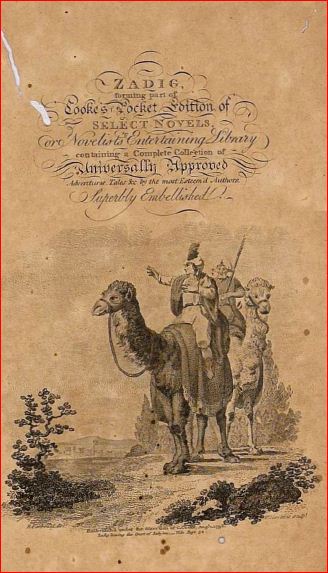 ZADIG,
forming part of
Cooke's Pocket Edition of
SELECT NOVELS,
or Novelist's Entertaining Library
containing a Complete Collection of
Universally Approved
Adventures, Tales &c by the most Esteem'd Authors.
Superbly Embellished.
Zadig leaving the Court of Babylon